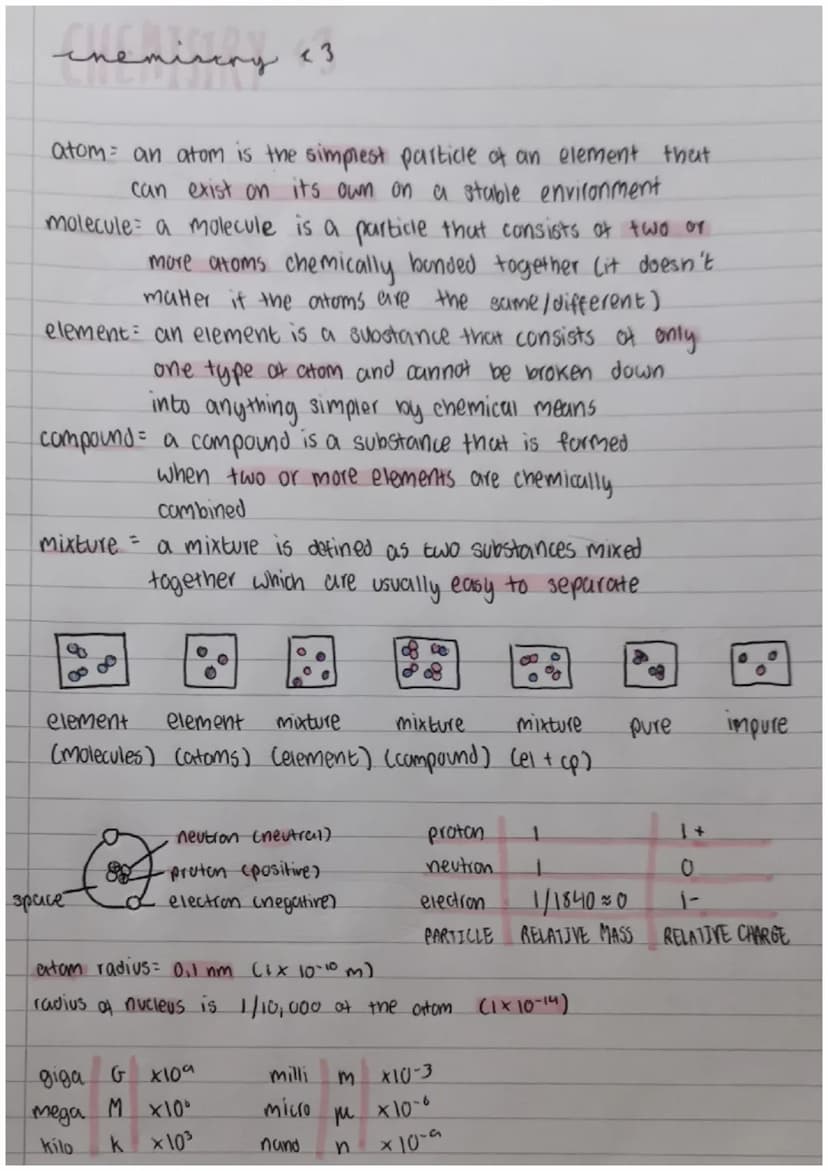 CHEMISTRY <3
chemistry <3
atom = an atom is the simplest particle of an element that
can exist on its own on a stable environment
molecule = a molecule is a particle that consists of two or
more atoms chemically bonded together (it doesn't
matter if the atoms are the same/different)
element = an element is a substance that consists of only
one type of atom and cannot be broken down
into anything simpler by chemical means
compound = a compound is a substance that is formed
when two or more elements are chemically
combined
mixture = a mixture is defined as two substances mixed
together which are usually easy to separate
element element mixture mixture mixture pure impure
(molecules) (atoms) (element) (compound) (el + cp)
neutron (neutral) proton 1 1+
proton (positive) neutron 1 0
space electron (negative) electron 1/1840 ≈ 0 1-
PARTICLE RELATIVE MASS RELATIVE CHARGE
atom radius = 0,1 nm (1 x 10⁻¹⁰ m)
radius of nucleus is 1/10,000 of the atom (1 x 10⁻¹⁴)
giga G x10⁹ milli m x10-3
mega M x10⁶ micro µ x10⁻⁶
kilo k x10³ nano n x10⁻⁹